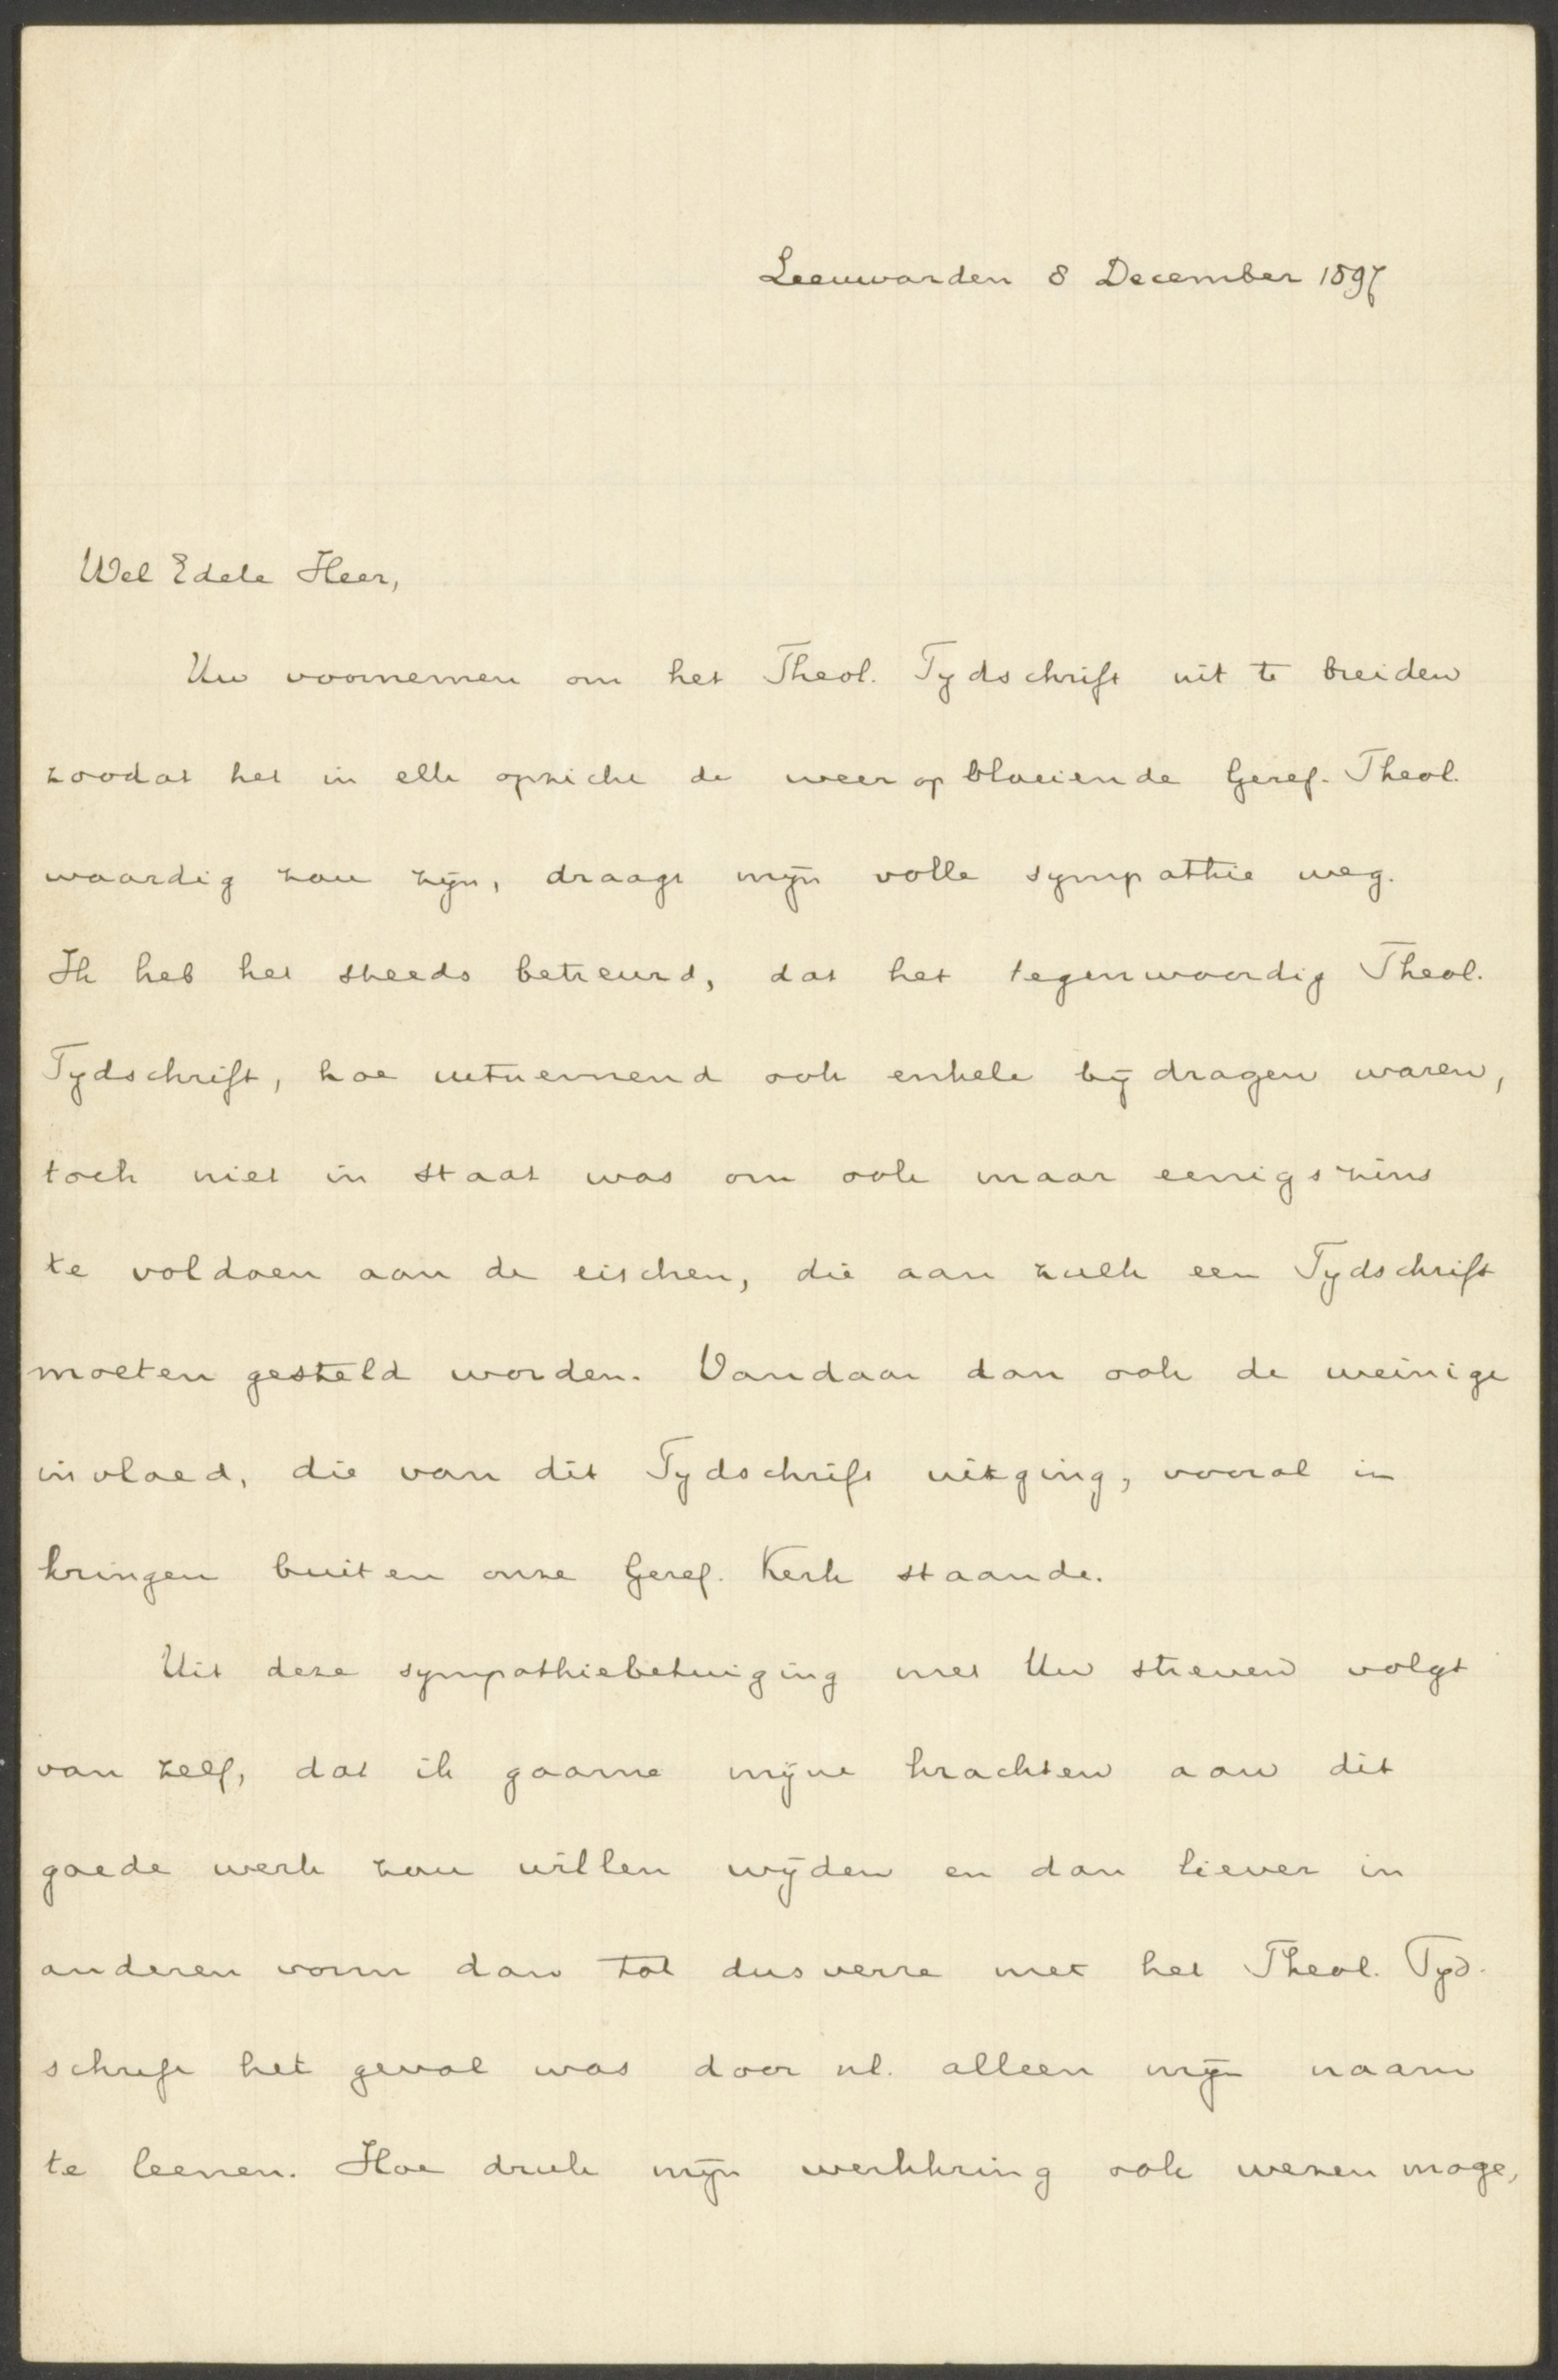 Leeuwarden 8 December 1897
Wel Edele Heer,
Uw voornemen om het Theol. Tydschrift uit te breiden
zoodat het in elk opzicht de weer opbloeiende Geref. Theol.
waardig zou zijn, draagt mijn volle sympathie weg.
Ik heb het steeds betreurd, dat het tegenwoordig Theol.
Tydschrift, hoe uitnemend ook enkele bijdragen waren,
toch niet in staat was om ook maar eenigszins
te voldoen aan de eischen, die aan zulk een Tydschrift
moeten gesteld worden. Vandaar dan ook de weinige
invloed, die van dit Tydschrift uitging, vooral in
kringen buiten onze Geref. Kerk staande.
Uit deze sympathiebetuiging met Uw streven volgt
van zelf, dat ik gaarne mijne krachten aan dit
goede werk zou willen wijden en dan liever in
anderen vorm dan tot dusverre met het Theol. Tyd-
schrift het geval was door nl. alleen mijn naam
te leenen. Hoe druk mijn werkkring ook wezen moge,